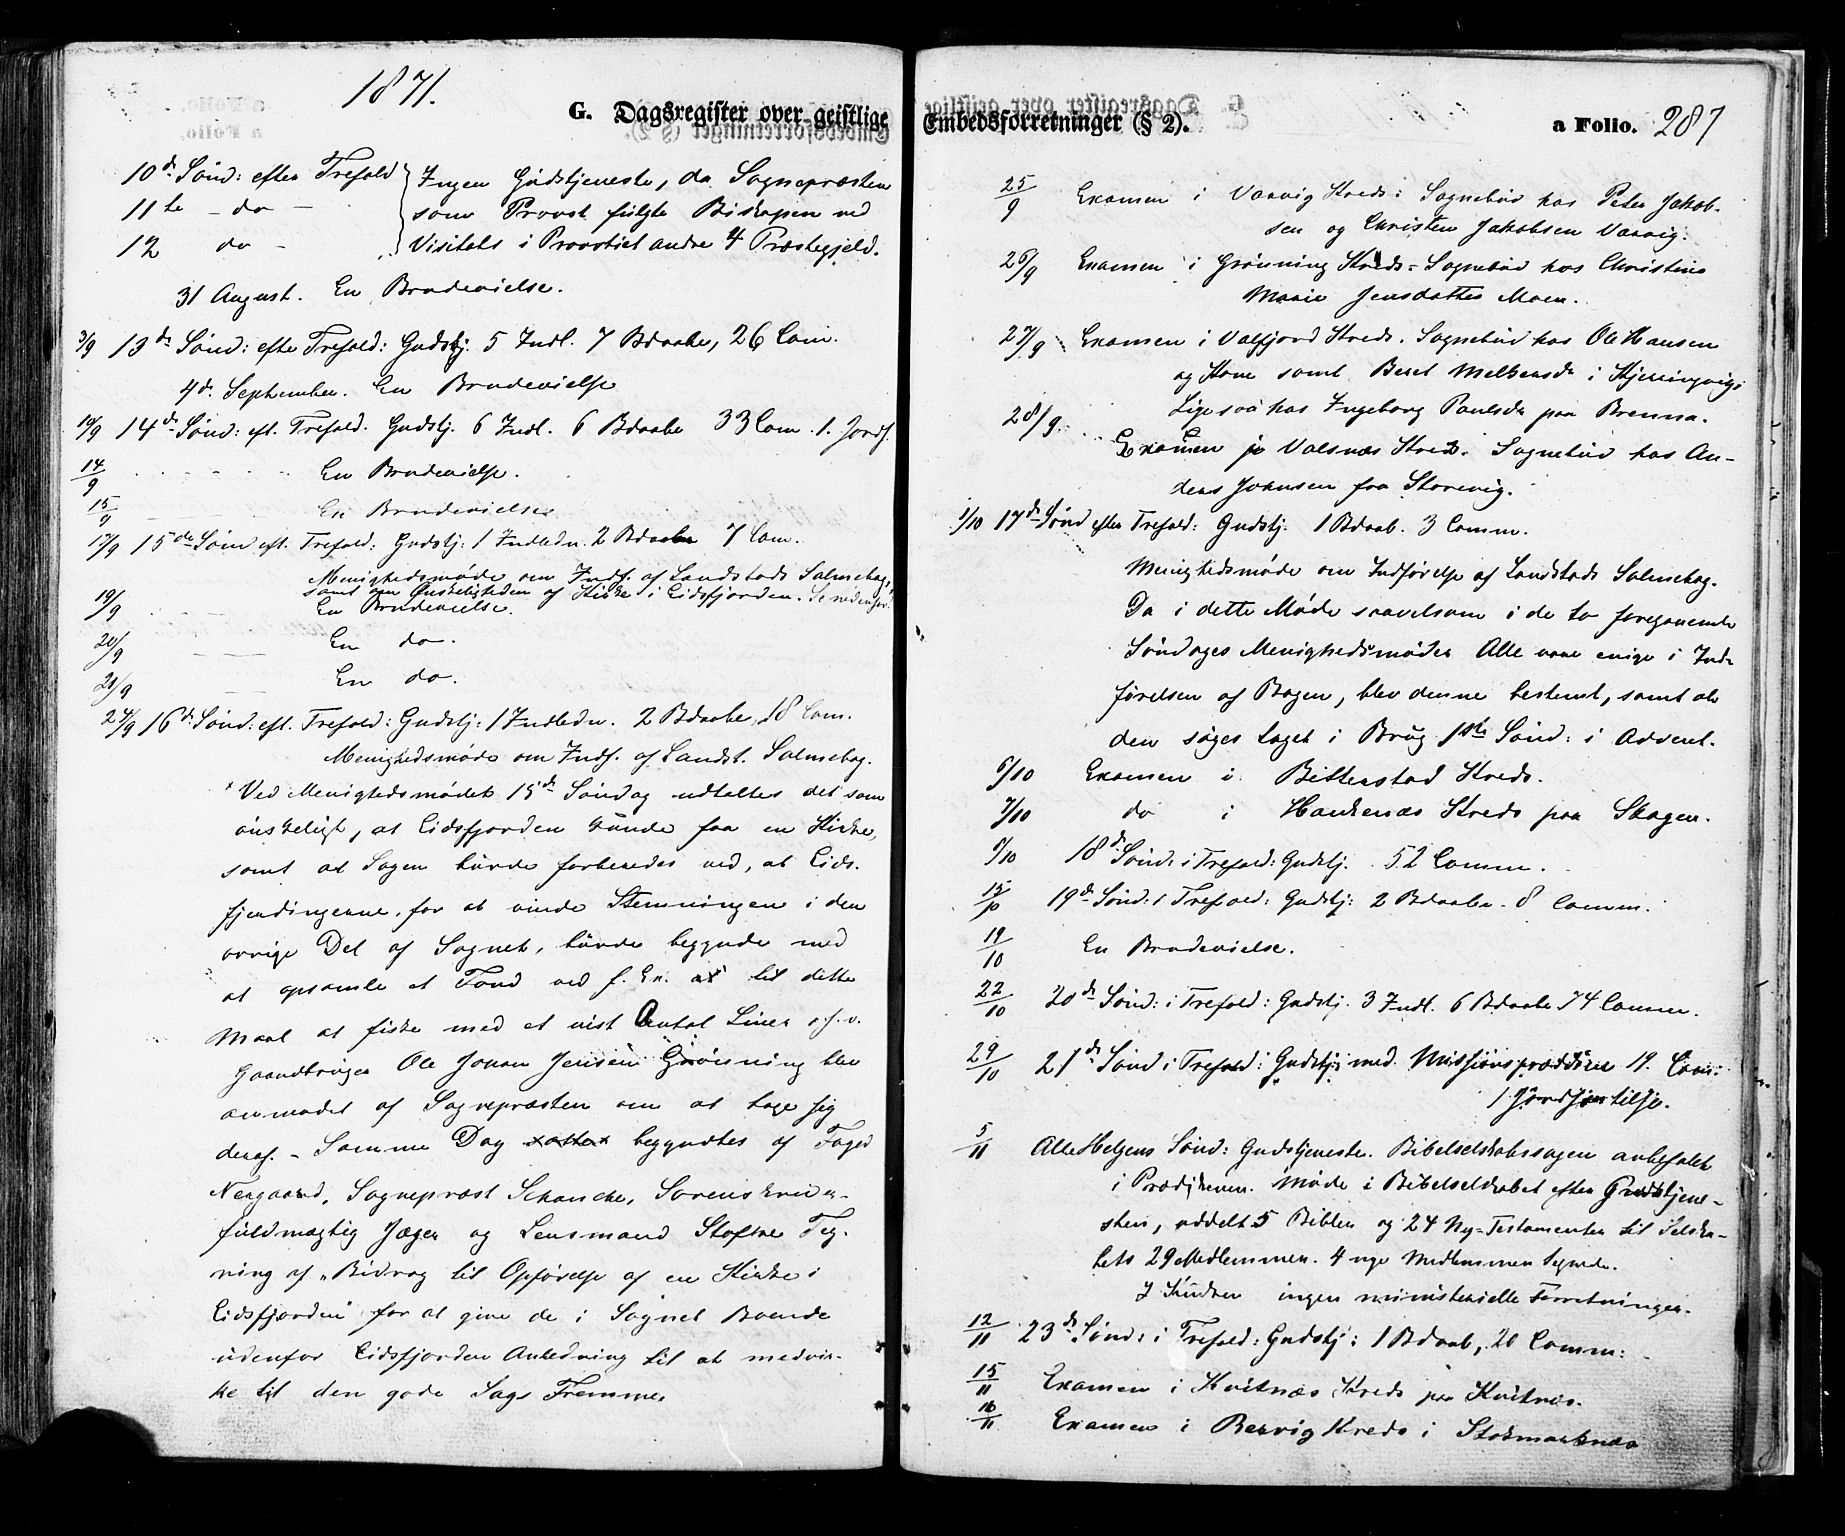 1871.
G. Dagsregister over geistlige
10de Sønd: efter Trefold Ingen Gudstjeneste, da Sognepræsten
11te - do - som Provst fulgte Biskopen ved
12 do - Visitats i Provstiet andre 4 Præstegjeld.
31 August. En Brudevielse.
3/9 13de Sønd: efter Trefold: Gudstj. 5 Indl. 7 Bdaabe, 26 Com.
4de September. En Brudevielse
10/9 14de Sønd: eft. Trefold. Gudstj. 6 Indl. 6 Bdaabe 33 Com. 1. Jordf.
14/9 En Brudevielse.
15/9 En Brudevielse
17/9 15de Sønd eft. Trefold: Gudstj: 1 Indledn. 2 Bdaabe 7 Com.
Menighedsmøde om Indf. af Landstads Salmebog,
samt om Ønskeligheden af Kirke i Eidsfjorden. Se nedenfor.
19/9 En Brudevielse.
20/9 En do.
21/9 En do.
24/9 16de Sønd: eft. Trefold: Gudstj: 1 Indledn. 2 Bdaabe, 18 Com.
Menighedsmøde om Indf. af Landst. Salmebog.
* Ved Menighedsmødet 15de Søndag udtaltes det som
ønskeligt, at Eidsfjorden kunde faa en Kirke,
samt at Sagen burde forberedes ved, at Eids-
fjendingerne, for at vinde Stemningen i den
øvrige Del af Sognet, burde begynde med
at opsamle et Fond ved f. Ex. at til dette
Maal at fiske med et vist Antal Liner o.s.v.
Gaardbruger Ole Johan Jensen Grønning blev
anmodet af Sognepræsten om at tage sig
deraf. - Samme Dag begyndtes af Foged
Neegaard, Sognepræst Schancke, Sorenskriver-
fuldmægtig Jæger og Lensmand Stofke Teg-
ning af "Bidrag til Opførelse af en Kirke i
Eidsfjorden" for at give de i Sognet Boende
udenfor Eidsfjorden Anledning til at medvir-
ke til den gode Sags Fremme.
Embedsforretninger (§ 2). a Folio. 287
25/9 Examen i Vaavig Kreds: Sognebud hos Peter Jakob-
sen og Christen Jakobsen Vaavig.
26/9 Examen i Grønning Kreds - Sognebud hos Christine
Marie Jensdatter Moen.
27/9 Examen i Valfjord Kreds. Sognebud hos Ole Hansen
og Kone samt Beret Melkersdr i Kjerringvig.
Ligesaa hos Ingeborg Paulsdr paa Brenna.
28/9 Examen i Valsnæs Kreds. Sognebud hos An-
ders Johnsen fra Storevig.
1/10 17de Sønd efter Trefold: Gudstj. 1 Bdaab. 3 Comm.
Menighedsmøde om Indførelse af Landstads Salmebog.
Da i dette Møde saavelsom i de to foregaaende
Søndages Menighedsmøder Alle vare enige i Ind-
førelsen af Bogen, blev denne bestemt, samt at
den søges taget i Brug 1ste Sønd: i Advent.
6/10 Examen i Bitterstad Kreds.
7/10 do i Haukenæs Kreds paa Skagen.
8/10 18de Sønd: i Trefold: Gudstj. 52 Comm.
15/10 19de Sønd: i Trefold: Gudstj: 2 Bdaabe. 8 Comm.
19/10 En Brudevielse.
22/10 20de Sønd: i Trefold: Gudstj. 3 Indl. 6 Bdaabe 74 Comm.
29/10 21de Sønd i Trefold: Gudstj: med Missionsprædiken 19. Com:
1 Jordfæstelse.
5/11 Alle Helgens Sønd: Gudstjeneste. Bibelselskabssagen anbefalet
i Prædikenen. Møde i Bibelselskabet efter Gudstjene-
sten, uddelt 5 Bibler og 24 Ny-Testamenter til Selska-
bets 29 Medlemmer. 4 nye Medlemmer tegnede.
I Kirken ingen ministerielle Forretninger.
12/11 23de Sønd: i Trefold: Gudstj: 1 Bdaab, 20 Comm:
15/11 Examen i Kvitnæs Kreds paa Kvitnæs.
16/11 Examen i Børvig Kreds i Stokmarknæs